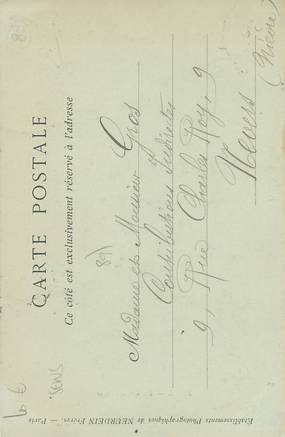 CARTE POSTALE
Ce côté est exclusivement réservé à l'adresse
89)
Madame et Monsieur Gros
Contributions Indirectes
9, Rue Charles Roy, 9
Nevers
(Nièvre)
SENS
Etablissements Photographiques de NEURDEIN Frères. — Paris